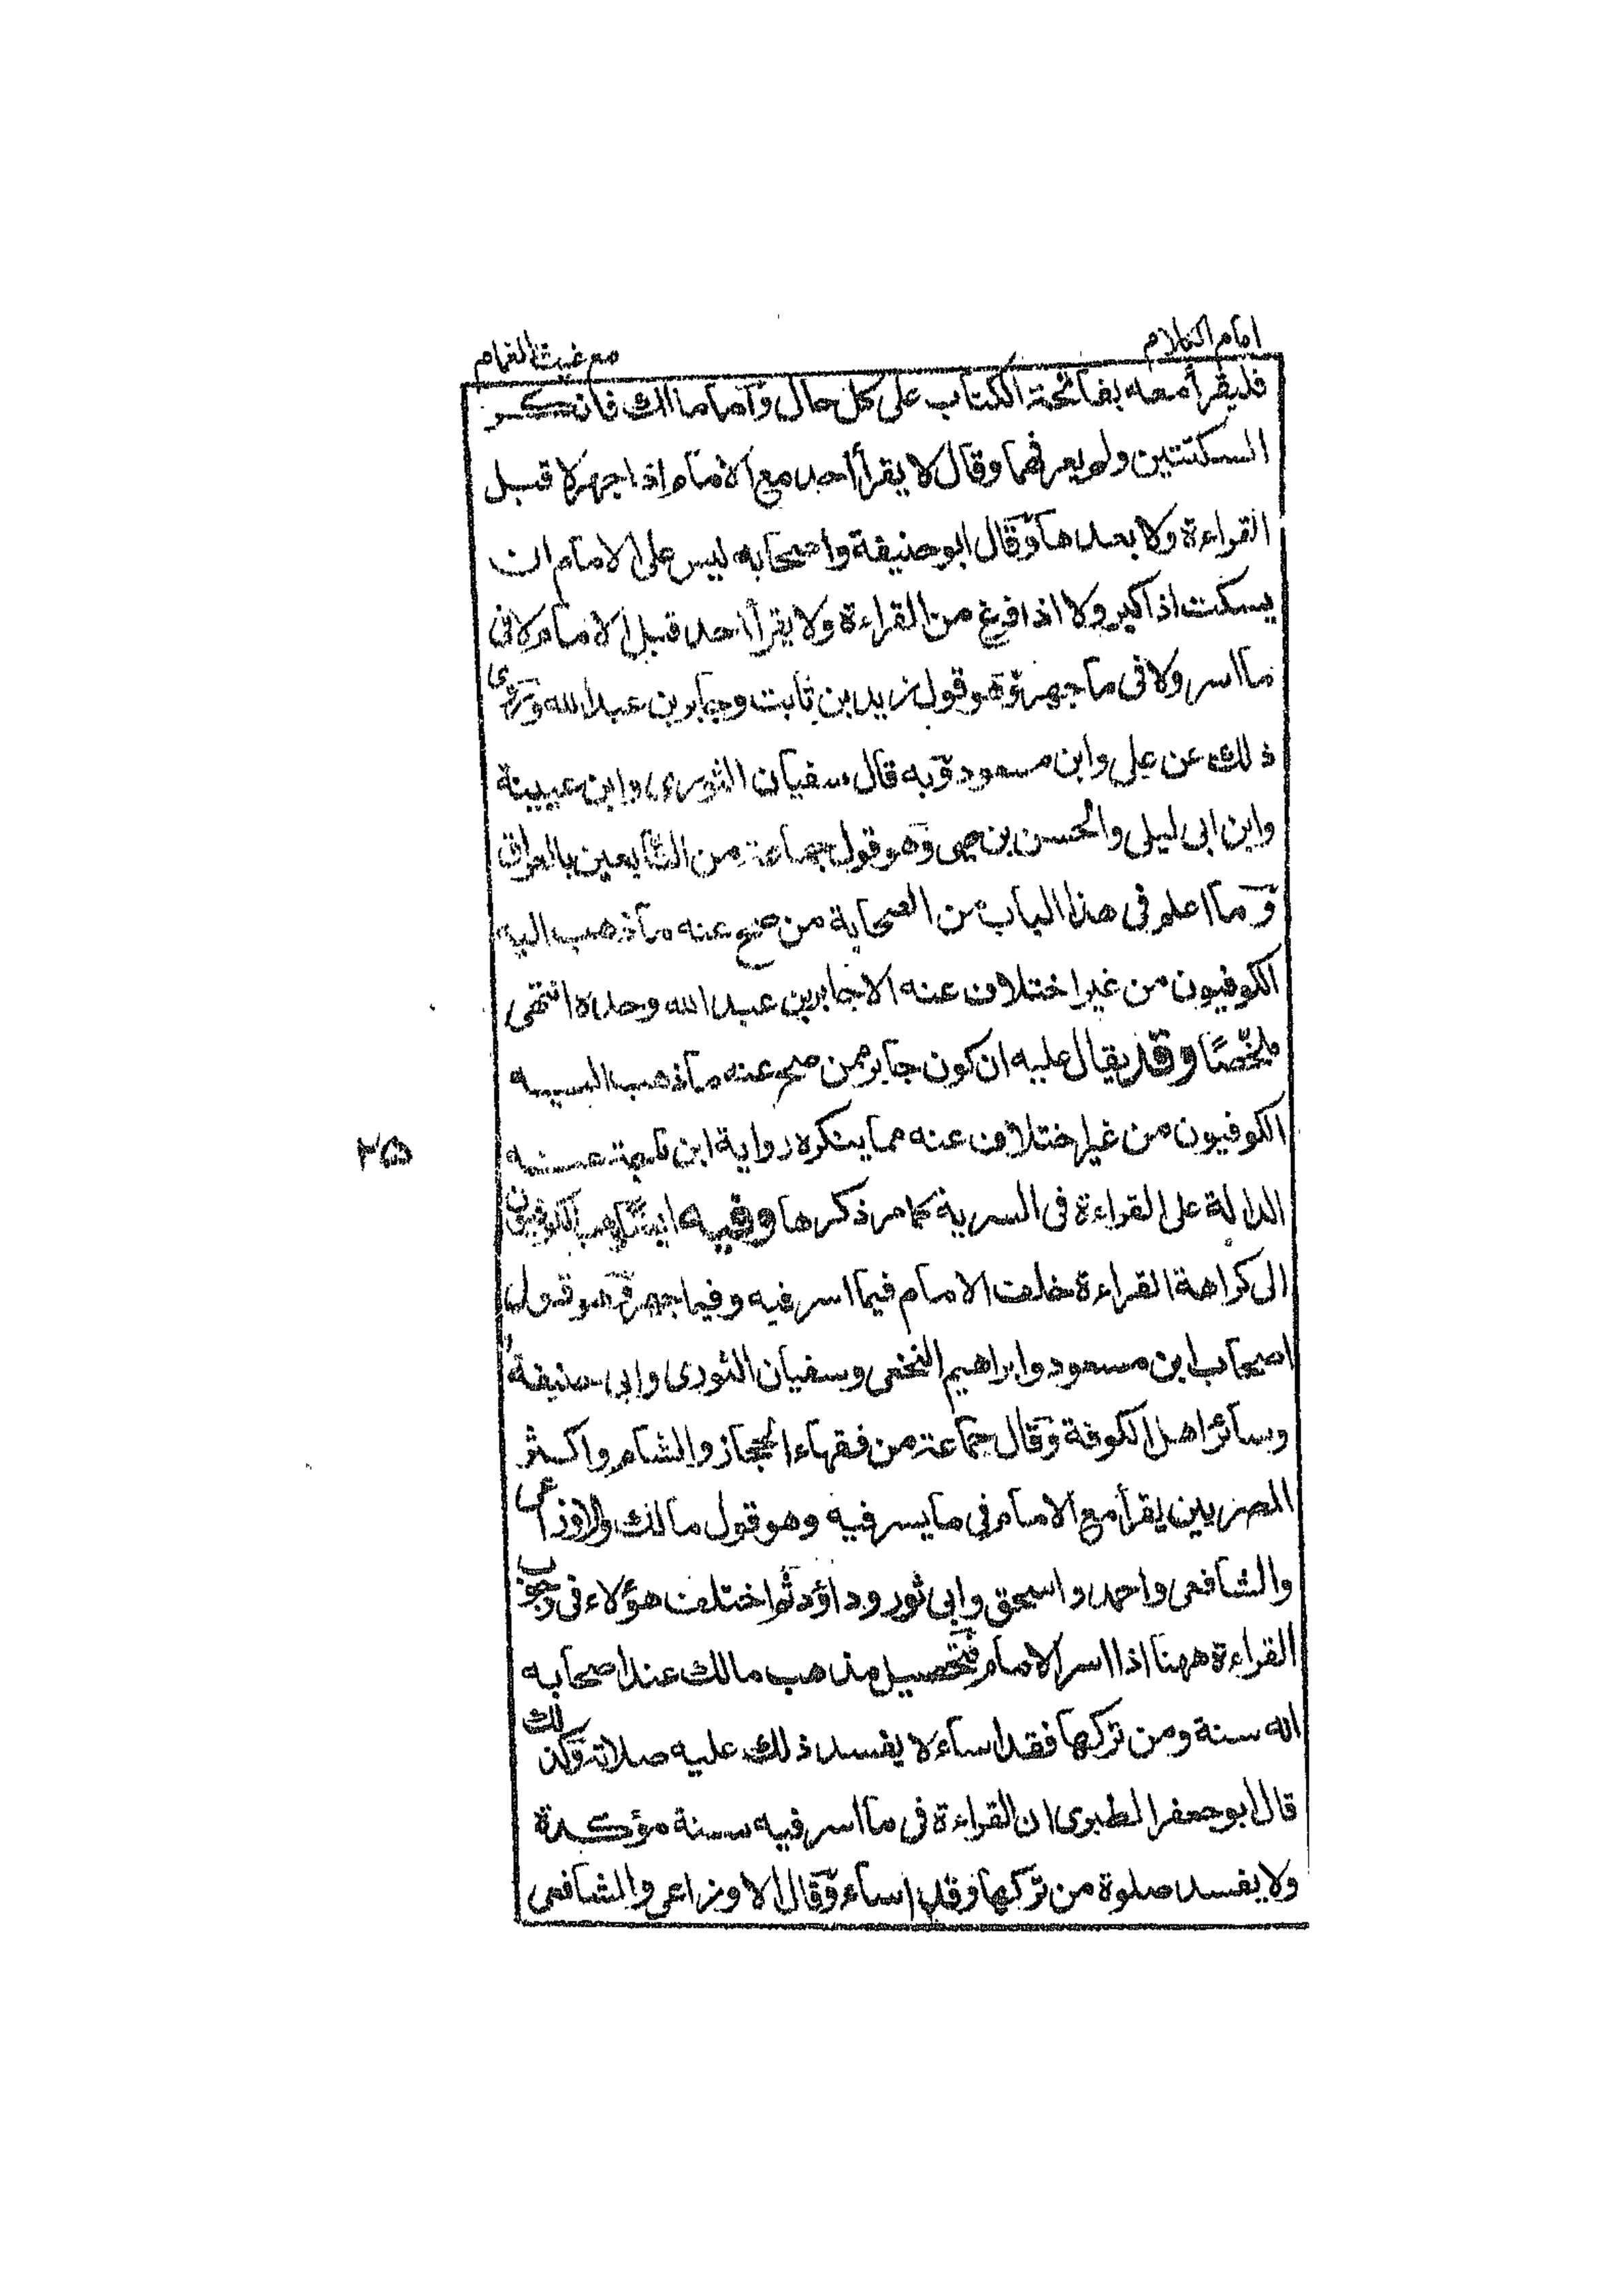 امام الكلام
مع غيث الغمام
فليقرأ معه بفاتحة الكتاب على كل حال وآما مالك فانكر
السكتتين ولم يعرفهما وقال لا يقرأ احد مع الامام اذا جهر لا قبل
القراءة ولا بعدها وقال ابو حنيفة واصحابه ليس على الامام ان
يسكت اذا كبر ولا اذا فرغ من القراءة ولا يقرأ احد قبل الامام لا فى
ما اسر ولا فى ما جهر وهو قول زيد بن ثابت وجابر بن عبد الله وروى
ذلك عن على وابن مسعود وبه قال سفيان الثورى وابن عيينة
وابن ابى ليلى والحسن بن حيى وهو قول جماعة من التابعين بالعراق
وما اعلم فى هذا الباب من الصحابة من صح عنه ما ذهب اليه
الكوفيون من غير اختلاف عنه الا جابر بن عبد الله وحده انتهى
ملخصًا وقد يقال عليه ان كون جابر ممن صح عنه ما ذهب اليه
الكوفيون من غير اختلاف عنه مما ينكره رواية ابن ماجة عنه
الدالة على القراءة فى السرية كما مر ذكرها وفيه ايضًا ذهب الكوفيون
الى كراهة القراءة خلف الامام فيما اسر فيه وفيما جهر وهو قول
اصحاب ابن مسعود وابراهيم النخعى وسفيان الثورى وابى حنيفة
وسائر اهل الكوفة وقال جماعة من فقهاء الحجاز والشام واكثر
المصريين يقرأ مع الامام فى ما يسر فيه وهو قول مالك والاوزاعى
والشافعى واحمد واسحق وابى ثور وداؤد ثم اختلف هؤلاء فى وجوب
القراءة ههنا اذا اسر الامام فتحصيل مذهب مالك عند اصحابه
انه سنة ومن تركها فقد اساء لا يفسد ذلك عليه صلاته وكذلك
قال ابو جعفر الطبرى ان القراءة فى ما اسر فيه سنة مؤكدة
ولا يفسد صلوة من تركها وقد اساء وقال الاوزاعى والشافعى
٢٥